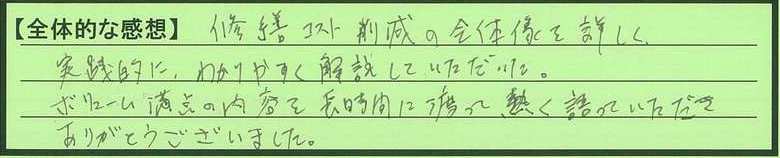 【全体的な感想】 修繕コスト削減の全体像を詳しく、
実践的に、わかりやすく解説していただいた。
ボリューム満点の内容を長時間に渡って熱く語っていただき
ありがとうございました。